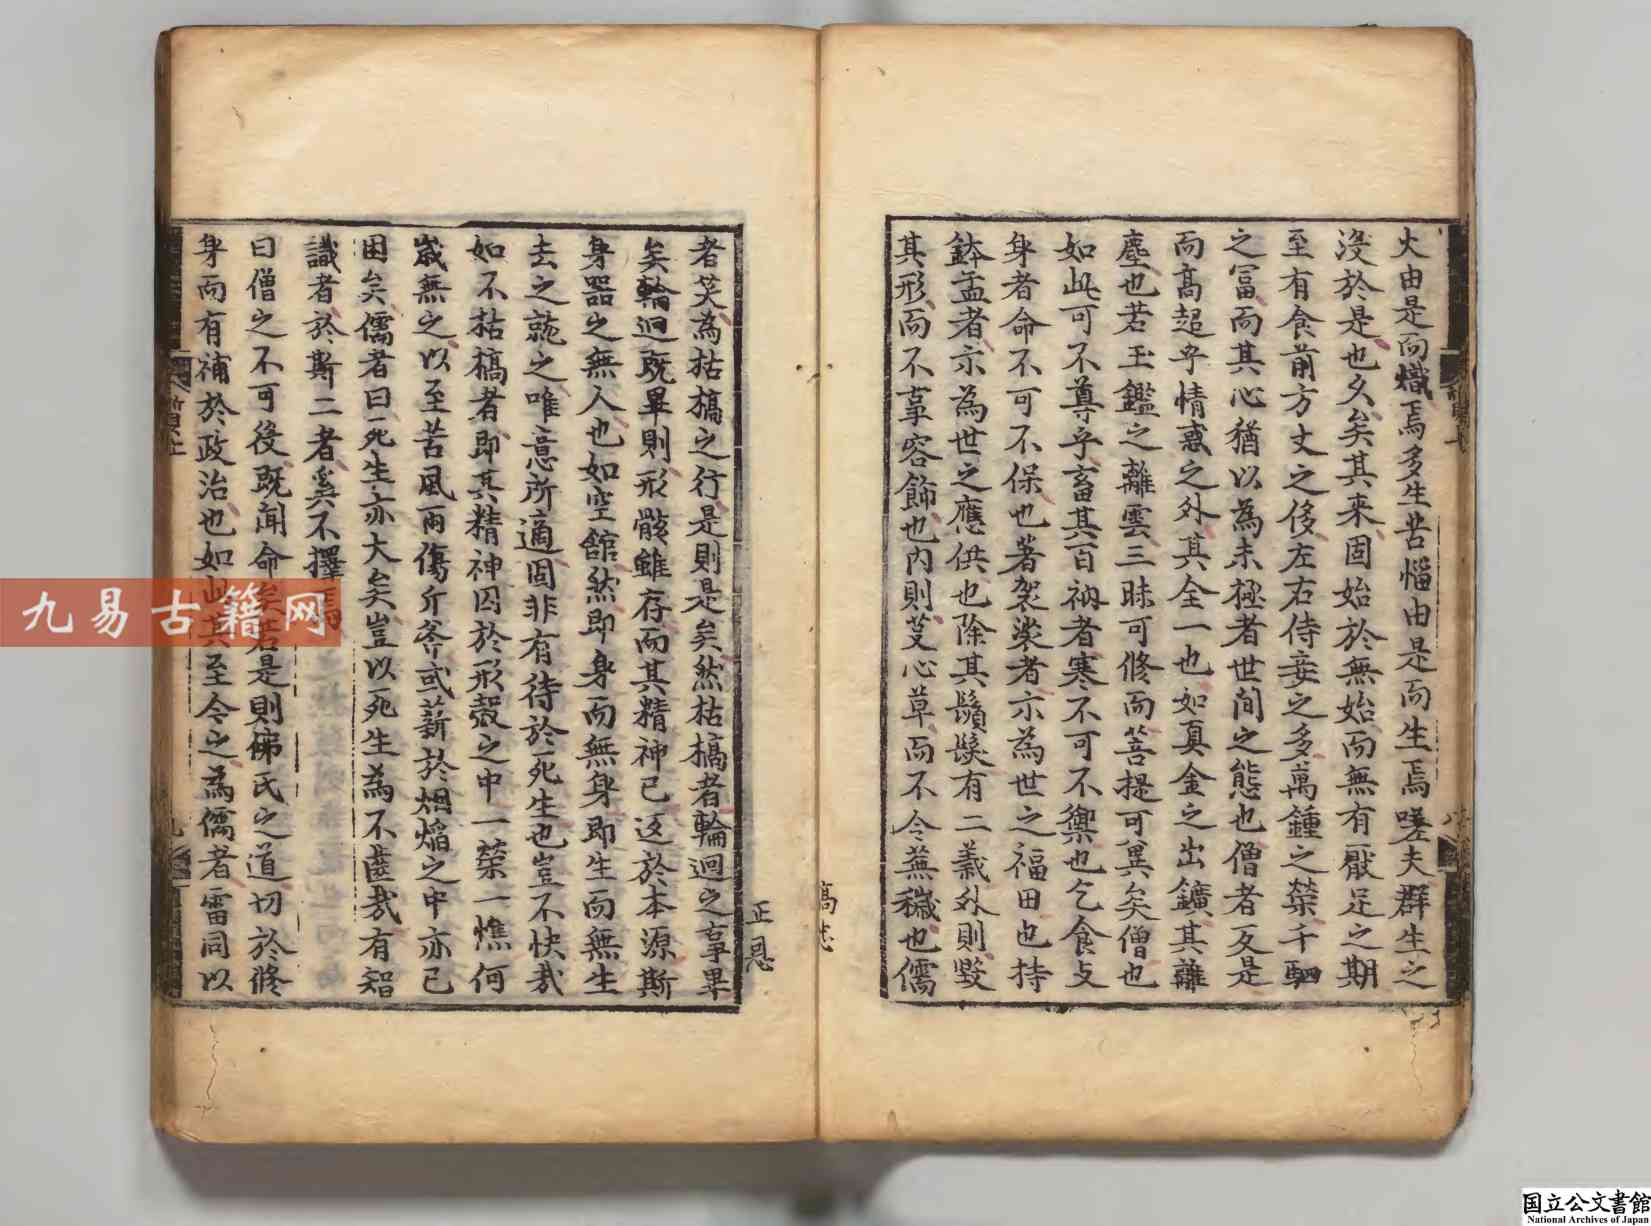 火由是而熾焉多生苦惱由是而生焉嗟夫群生之
沒於是也久矣其來固始於無始而無有厭足之期
至有食前方丈之侈左右侍妾之多萬鍾之榮千駟
之冨而其心猶以為未極者世間之態也僧者反是
而髙超乎情惑之外其全一也如真金之出鑛其離
塵也若玉鑑之離雲三昧可修而菩提可冀矣僧也
如此可不尊乎畜其百衲者寒不可不禦也乞食支
身者命不可不保也著袈裟者示為世之福田也持
鉢盂者示為世之應供也除其鬚髮有二義外則毀
其形而不享容飾也内則芟心草而不令蕪穢也儒
者笑為枯槁之行是則是矣然枯槁者輪迴之享畢
矣輪迴既畢則形骸雖存而其精神已返於本源斯
身器之無人也如空舘然即身而無身即生而無生
去之就之唯意所適固非有待於死生也豈不快哉
如不枯槁者即其精神囚於形殼之中一榮一憔何
歲無之以至苦風雨傷斤斧或薪於烟焰之中亦已
困矣儒者曰死生亦大矣豈以死生為不齒哉有智
識者於斯二者奚不擇焉
曰僧之不可後既聞命矣若是則佛氏之道切於修
身而有補於政治也如此其至令之為儒者雷同以
正恩
髙忠
九易古籍网
国立公文書館
National Archives of Japan